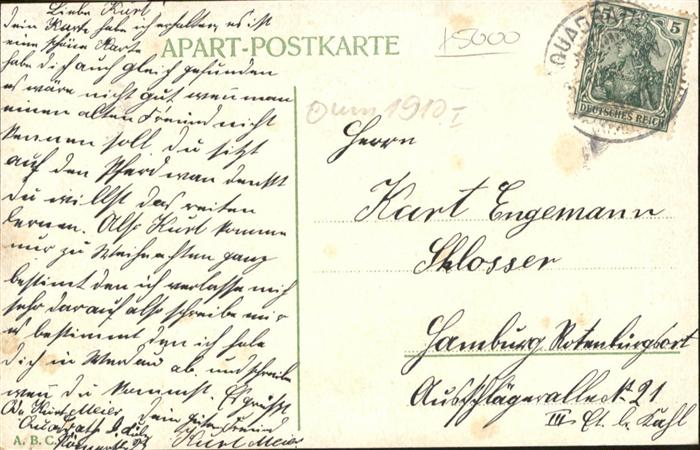 Liebe Kurt!
dein Karte habe ich erhalten, es ist
eine schöne Karte
habe dich auch gleich gefunden
es wäre nicht gut wen man
einen alten Freund nicht
kennen soll du sitzt
auf den Pferd man denkt
du willst das reiten
lernen. Also Kurt komme
mir zu Weihnachten ganz
bestimt den ich verlasse mich
sehr darauf also schreibe mir
es bestimmt den ich hole
dich in Werdau ab. und schreibe
wen du kommst. Es grüßt
dein guter Freund
Kurt Meier
Kurt Meier
A. B. C.
APART-POSTKARTE
+5000
1910-I
5 5
DEUTSCHES REICH
Herrn
Kurt Engemann
Schlosser
Hamburg Rotenburgsort
Ausschlägerallee 21
III Et. b. Kahl